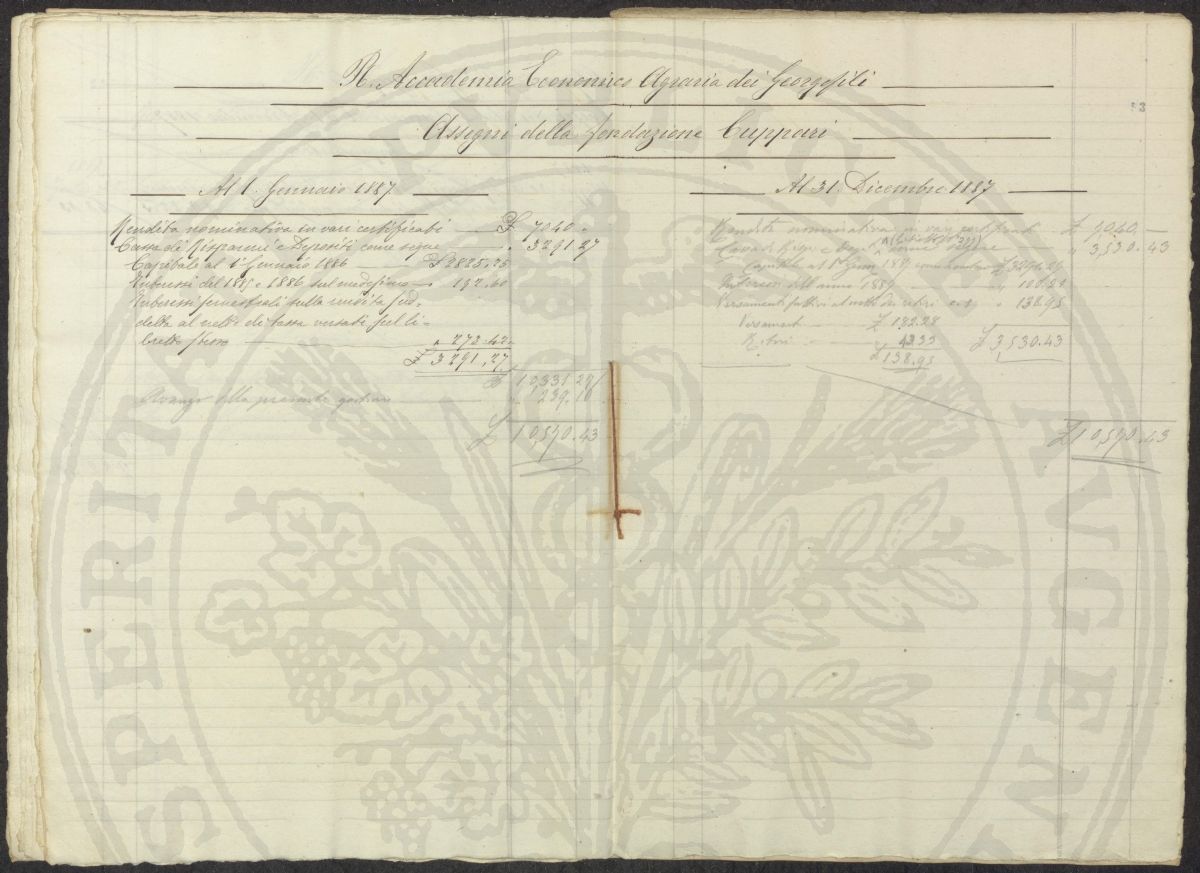 R. Accademia Economico Agraria dei Georgofili
Assegni della fondazione Cuppari
Al 1. Gennaio 1887
Rendita nominativa in vari certificati £ 7040 "
Cassa di Risparmi e Depositi come segue " 3291 27
Capitale al 1° Gennaio 1886 £ 2825.75
Interessi del 1885 e 1886 sul medesimo " 192.10
Interessi semestrali sulla rendita sud-
detta al netto di tassa versati sul li-
bretto stesso " 273.42
£ 3291,27
£ 10,331 27
Avanzo della presente gestione 239.16
£ 10,570.43
23
Al 31. Dicembre 1887
Rendita nominativa in vari certificati £ 7040.—
" 3,530.43
Capitale al 1° Genn 1887 £ 3291.27
Interessi dell'anno 1887 " 100.21
Versamenti fatti al netto dei ritiri " 138.95
Versamenti £ 182.28
Ritiri 43 33 £ 3,530.43
£ 138.95
£ 10,570.43
PROSPERITATI PUBLICAE AVGENDAE